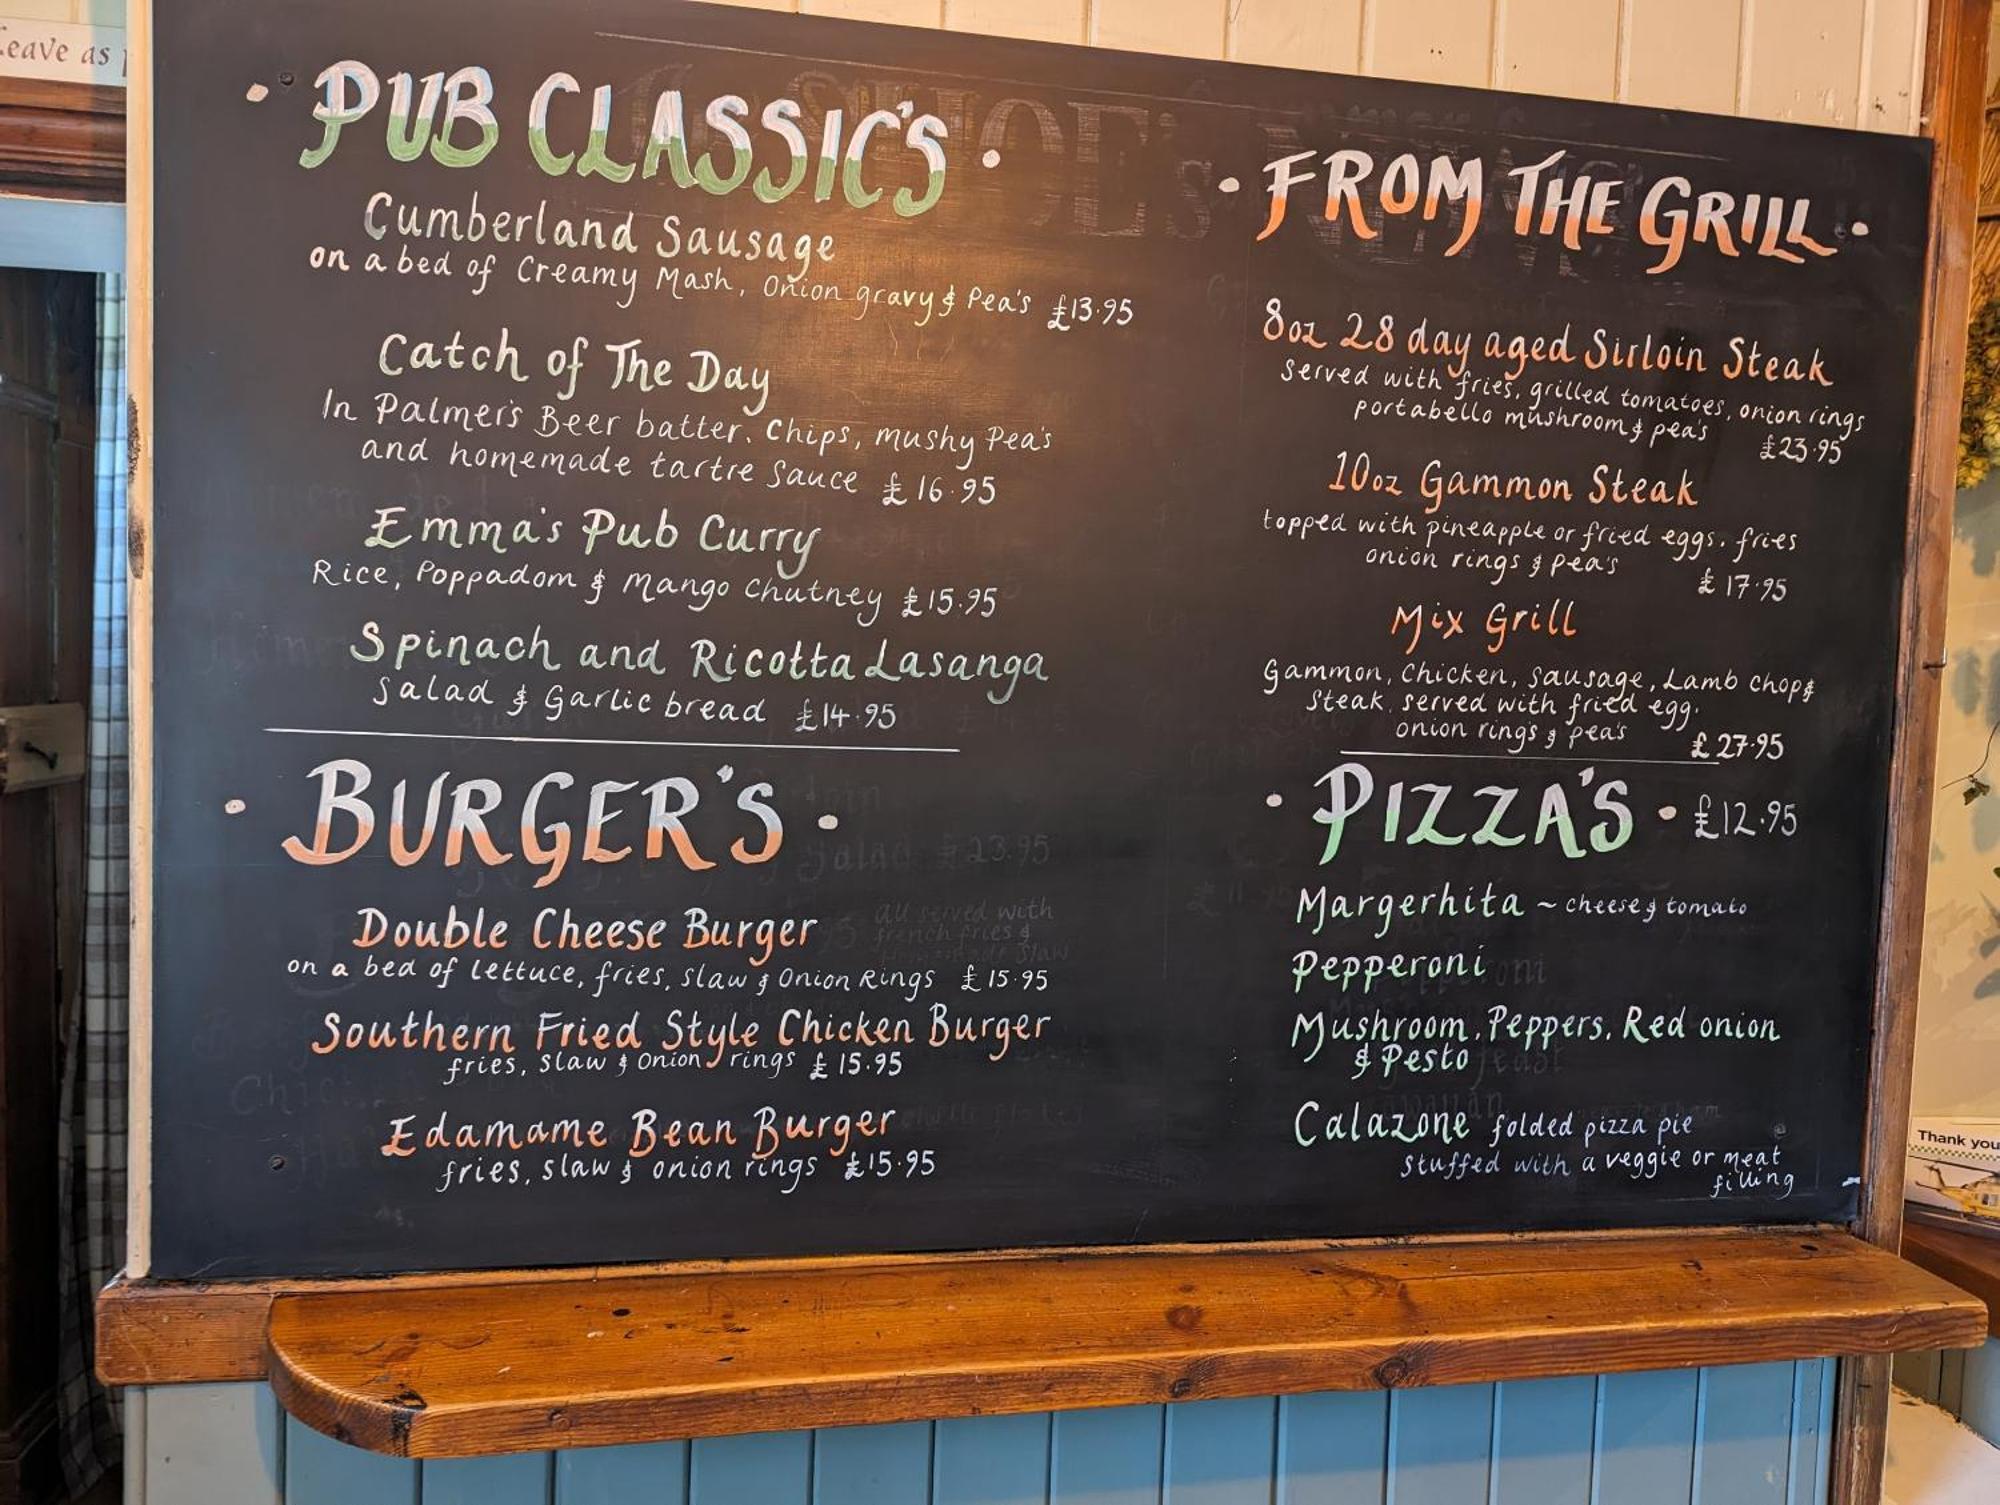 Leave as
PUB CLASSIC'S
Cumberland Sausage
on a bed of Creamy Mash, Onion gravy & Pea's £13.95
Catch of The Day
In Palmer's Beer batter. Chips, mushy Pea's
and homemade tartre Sauce £16.95
Emma's Pub Curry
Rice, Poppadom & Mango Chutney £15.95
Spinach and Ricotta Lasanga
Salad & Garlic bread £14.95
BURGER'S
Double Cheese Burger
on a bed of lettuce, fries, slaw & Onion Rings £15.95
Southern Fried Style Chicken Burger
fries, slaw & onion rings £15.95
Edamame Bean Burger
fries, slaw & onion rings £15.95
FROM THE GRILL
8oz 28 day aged Sirloin Steak
Served with fries, grilled tomatoes, onion rings
portabello mushroom & pea's £23.95
10oz Gammon Steak
topped with pineapple or fried eggs. fries
onion rings & pea's £17.95
Mix Grill
Gammon, Chicken, Sausage, Lamb chop &
Steak. served with fried egg.
onion ring's & pea's £27.95
PIZZA'S £12.95
Margerhita ~ cheese & tomato
Pepperoni
Mushroom, Peppers, Red onion
& Pesto
Calazone folded pizza pie
stuffed with a veggie or meat
filling
Thank you